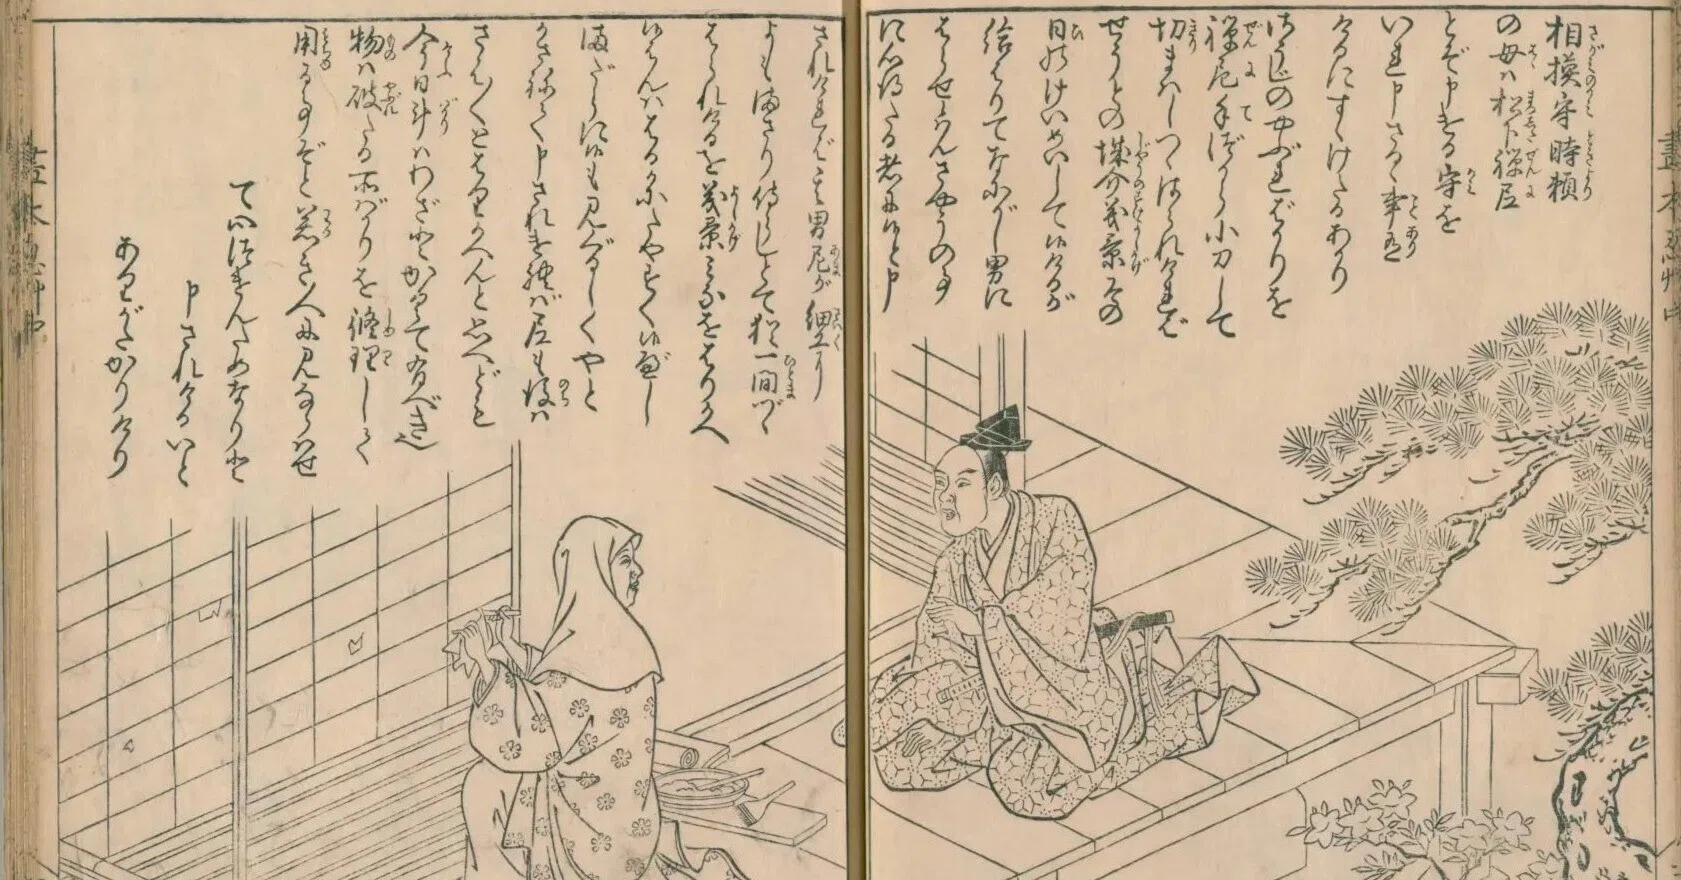 相摸守時頼
の母ハ松下禅尼
とぞ申ける守を
いれ申さるゝ事有
けるにすゝけたるあかり
さうじのやぶればかりを
禅尼手づから小刀して
切まハしつゝはられければ
せうとの城介義景その
日のけいめいして候けるが
給はりてなにがし男に
はらせ候ハんさやうの事
に心得たる者に候と申
されければその男尼が細工に
よもまさり侍らじとて猶一間づゝ
はられけるを義景みなをはりかへ
候はんハはるかにたやすく候べし
まだらに候も見ぐるしくやと
かさねて申されければ尼も後ハ
さは〳〵とはりかへんと思へども
今日斗ハわざとかくて有べき也
物ハ破たる所ばかりを修理して
用る事ぞと若き人に見ならハせ
て心づけんためなりと
申されけるいと
ありがたかりけり
畫本